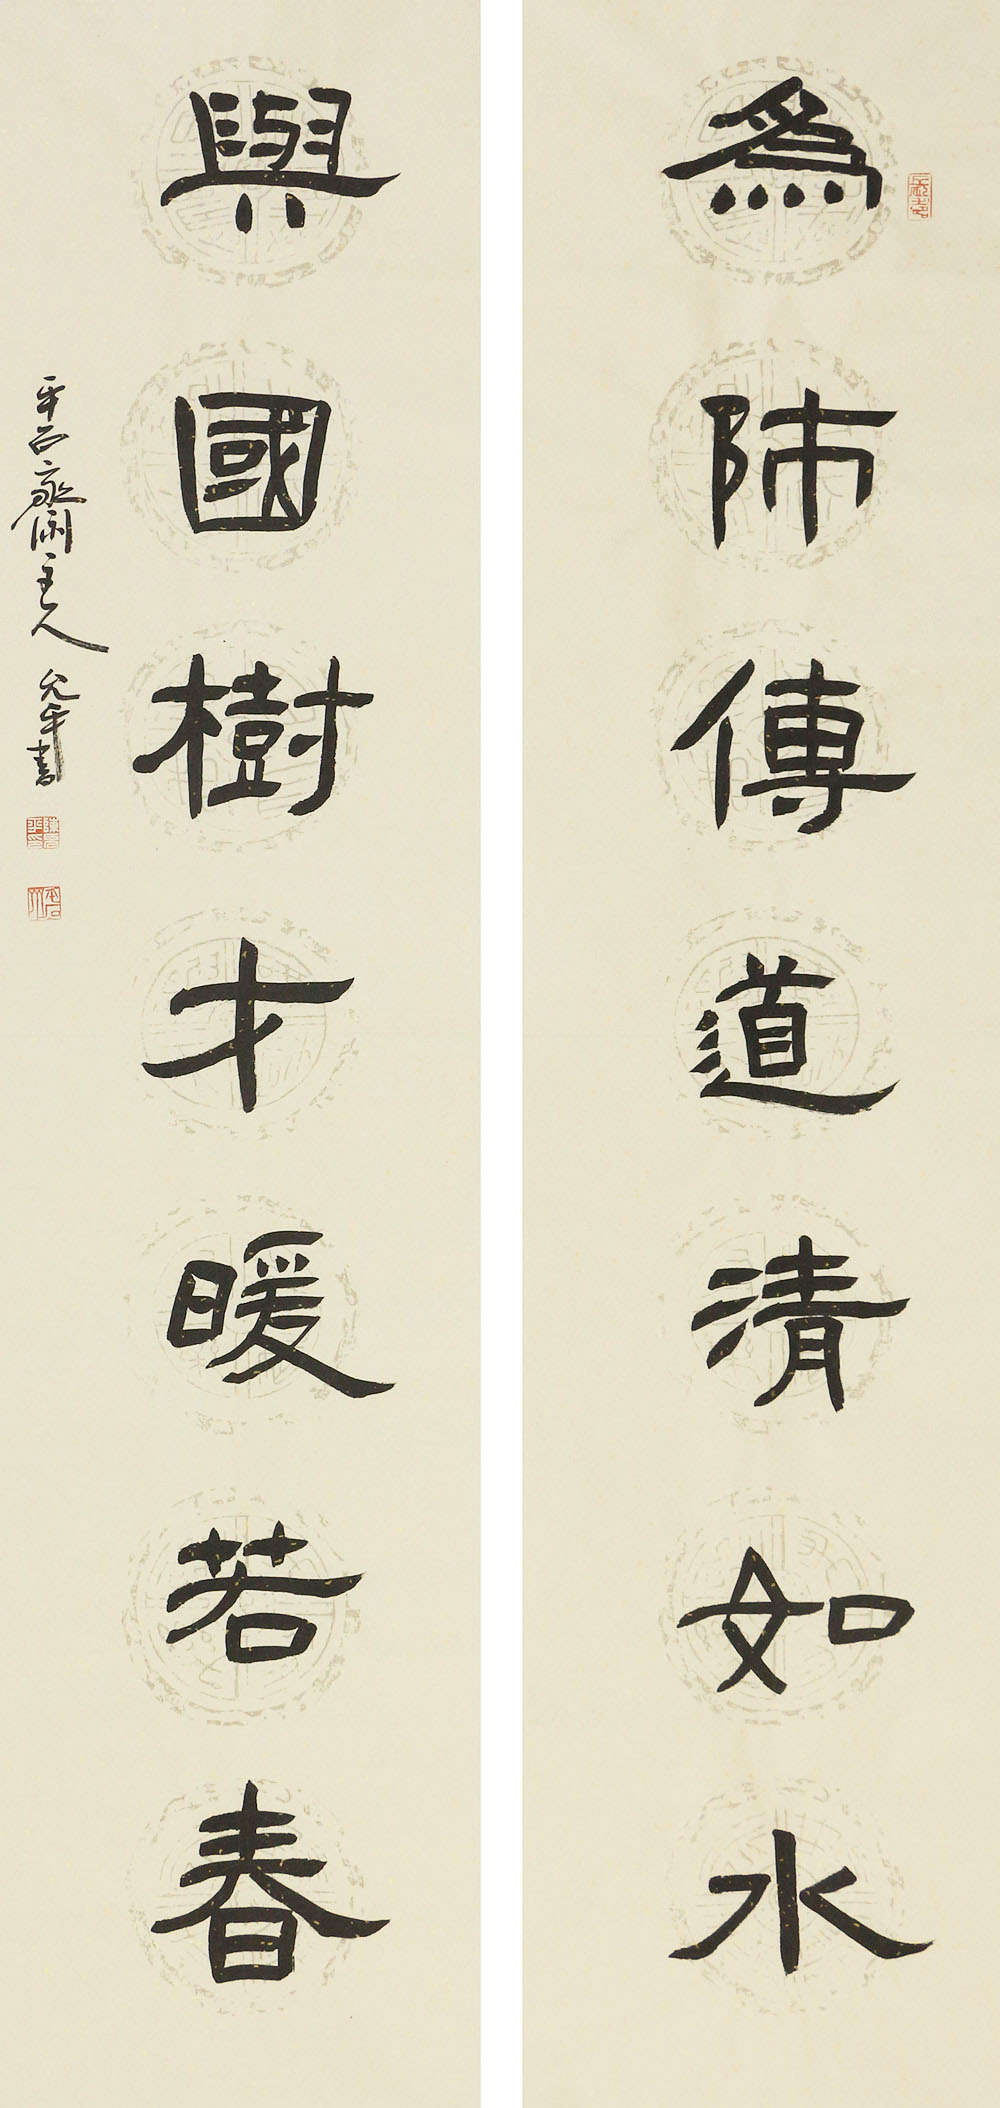 為師傳道清如水
與國樹才暖若春
主人
允平書